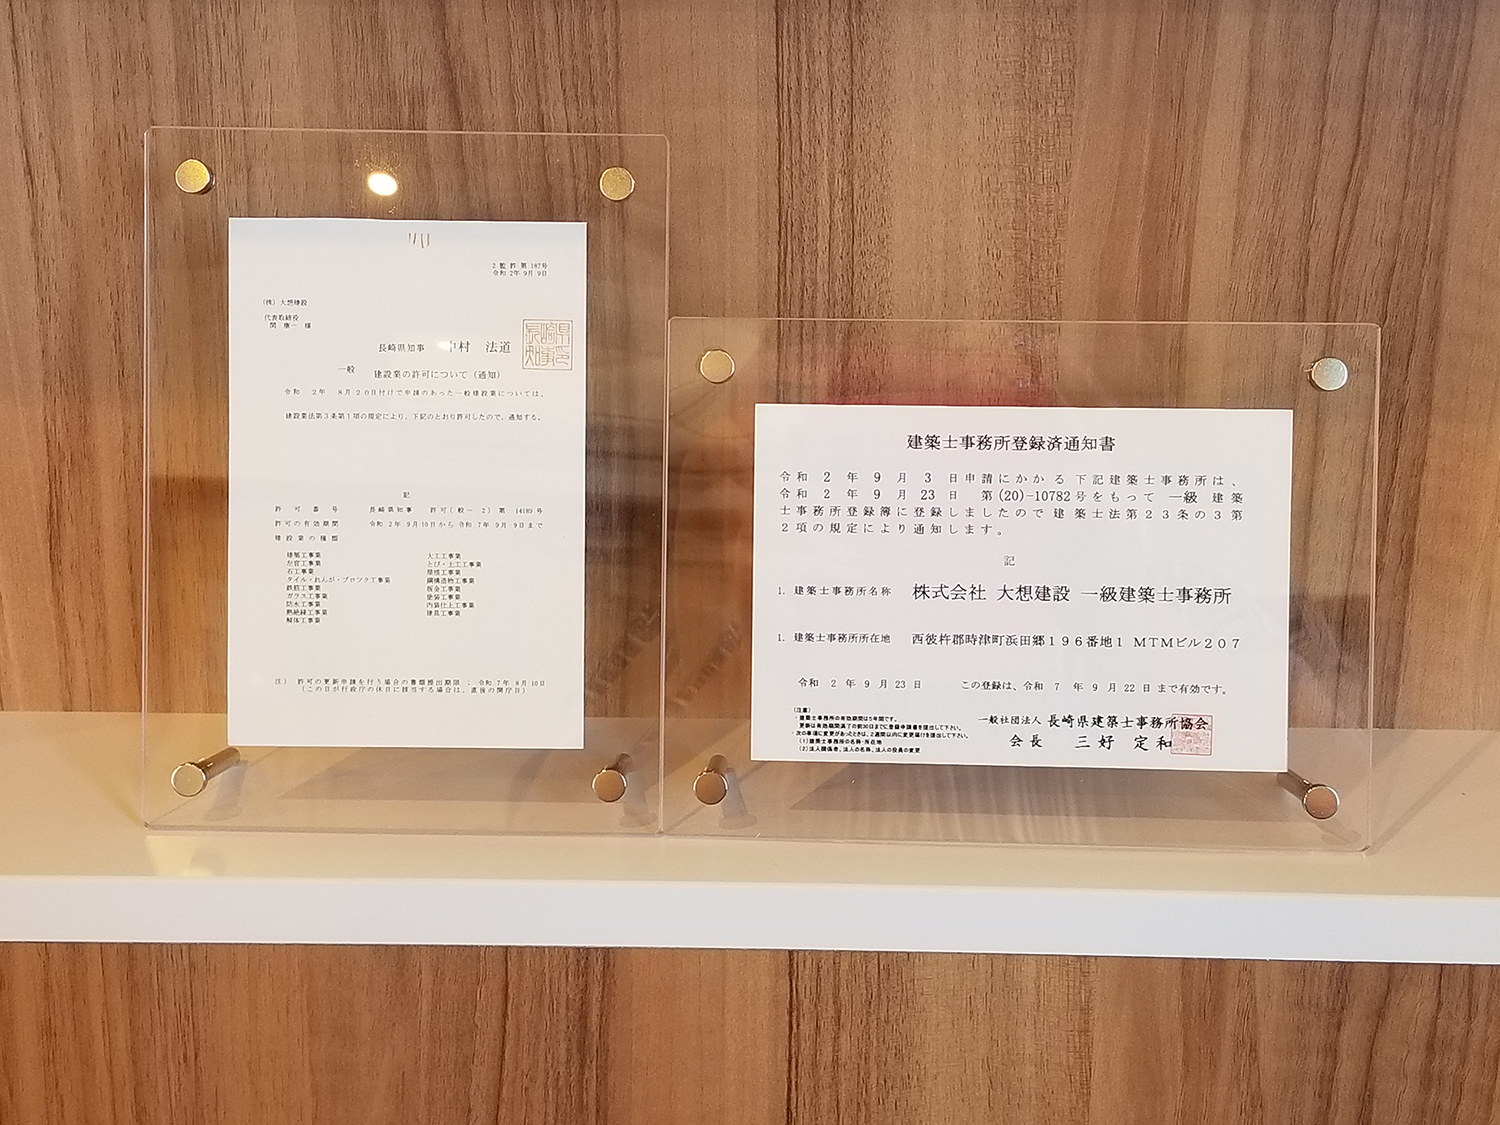 2 監 許 第 187号
令和 2年 9月 9日
(株) 大想建設
代表取締役
関 康一 様
長崎県知事 中村 法道
長崎県
知事之印
一般 建設業の許可について(通知)
令和 2年 8月20日付けで申請のあった一般建設業については、
建設業法第3条第1項の規定により、下記のとおり許可したので、通知する。
記
許 可 番 号 長崎県知事 許可(般-2)第 14189号
許可の有効期間 令和 2年 9月10日から 令和 7年 9月 9日まで
建設業の種類
建築工事業 大工工事業
左官工事業 とび・土工工事業
石工事業 屋根工事業
タイル・れんが・ブロツク工事業 鋼構造物工事業
鉄筋工事業 板金工事業
ガラス工事業 塗装工事業
防水工事業 内装仕上工事業
熱絶縁工事業 建具工事業
解体工事業
注) 許可の更新申請を行う場合の書類提出期限 : 令和 7年 8月10日
(この日が行政庁の休日に該当する場合は、直後の開庁日)
建築士事務所登録済通知書
令和 2 年 9 月 3 日申請にかかる下記建築士事務所は、
令和 2 年 9 月 23 日 第(20)-10782号をもって 一級 建築
士事務所登録簿に登録しましたので建築士法第23条の3第
2項の規定により通知します。
記
1. 建築士事務所名称 株式会社 大想建設 一級建築士事務所
1. 建築士事務所所在地 西彼杵郡時津町浜田郷196番地1 MTMビル207
令和 2 年 9 月 23 日 この登録は、令和 7 年 9 月 22 日まで有効です。
(注意)
・建築士事務所の有効期間は5年間です。
更新は有効期間満了の前30日までに登録申請書を提出して下さい。
・次の事項に変更があったときは、2週間以内に変更届けを提出して下さい。
(1)建築士事務所の名称・所在地
(2)法人関係者、法人の名称、法人の役員の変更
一般社団法人 長崎県建築士事務所協会
会長 三好 定和